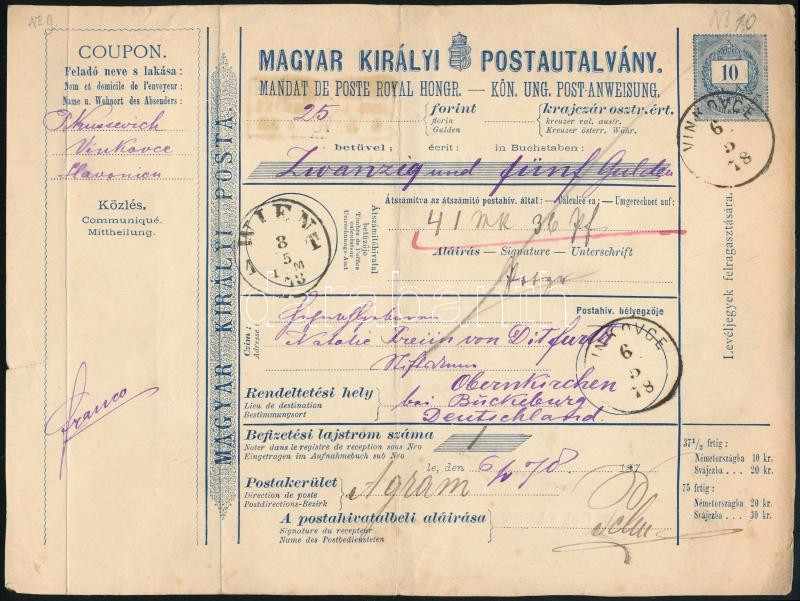 No 9.
No 10
COUPON.
Feladó neve s lakása:
Nom et domicile de l'envoyeur:
Name u. Wohnort des Absenders:
Vinkovce
Slavonien
Közlés.
Communiqué.
Mittheilung.
franco
MAGYAR KIRÁLYI POSTA.
MAGYAR KIRÁLYI POSTAUTALVÁNY.
MANDAT DE POSTE ROYAL HONGR. — KÖN. UNG. POST-ANWEISUNG.
10
VINKOVCE
6
5
78
25 forint krajczár osztr. ért.
florin kreuzer val. austr.
Gulden Kreuzer österr. Währ.
betüvel: écrit: in Buchstaben:
Zwanzig und fünf Gulden
Átszámítva az átszámító postahiv. által: - Dálculée en: - Umgerechnet auf:
Átszámítóhivatal
betüzője
Timbre de l'office
calculateur
Umrechnungs-Amt
41 Mk 36 Pf
Aláirás - Signature - Unterschrift
WIEN
8
5
78
Postahiv. bélyegzője
Czim:
Adresse:
Natalie Freiin von Ditfurth
VINKOVCE
6
5
78
Rendeltetési hely
Lieu de destination
Bestimmungsort
Obernkirchen
bei Bückeburg
Deutschland.
Befizetési lajstrom száma 1
Noter dans le registre de reception sous Nro
Eingetragen im Aufnahmebuch sub Nro
le, den 6/5 78. 187
Postakerület Agram
Direction de poste
Postdirections-Bezirk
A postahivatalbeli aláirása
Signature du recepteur
Name des Postbediensteten
Levéljegyek felragasztására.
37 1/2 frtig:
Németországba 10 kr.
Svájczba . . . 20 kr.
75 frtig:
Németországba 20 kr.
Svájczba . . . 30 kr.
darabanth